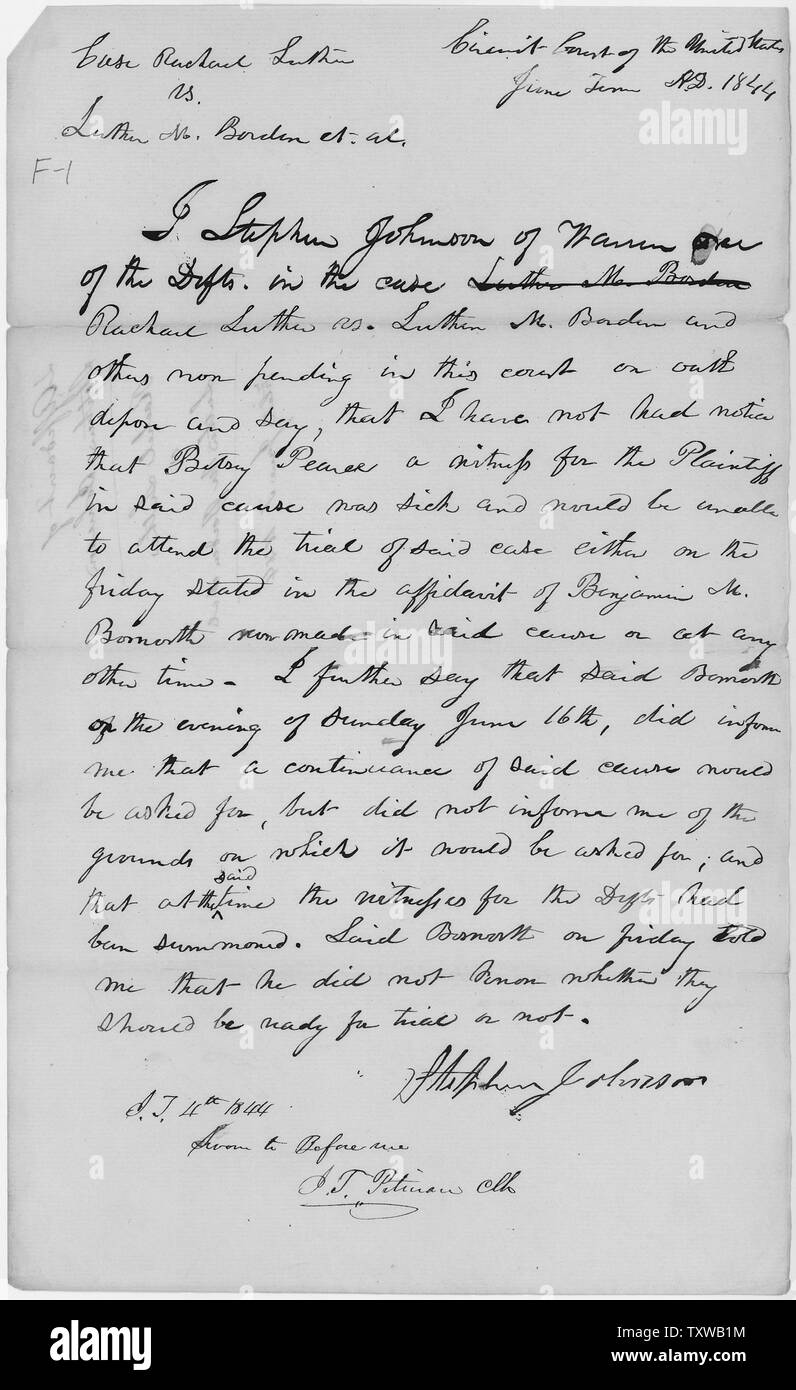 Case Rachael Luther
vs.
Luther M. Borden et. al.
Circuit Court of the United States
June Term A.D. 1844
F-1
I Stephen Johnson of Warren one
of the Defts. in the case Luther M. Borden
Rachael Luther vs. Luther M. Borden and
others now pending in this court on oath
depose and say, that I have not had notice
that Betsey Pearce a witness for the Plaintiff
in said cause was sick and would be unable
to attend the trial of said case either on the
friday stated in the affidavit of Benjamin M.
Bosworth now made in said cause or at any
other time - I further say that said Bosworth
on the evening of Sunday June 16th, did inform
me that a continuance of said cause would
be asked for, but did not inform me of the
grounds on which it would be asked for; and
that at the said time the witnesses for the Defts had
been summoned. Said Bosworth on friday told
me that he did not know whether they
should be ready for trial or not.
Stephen Johnson
J. T. 4th 1844
Sworn to Before me
J. T. Pitman Clk
alamy
alamy
alamy
alamy
Image ID: TXWB1M
www.alamy.com